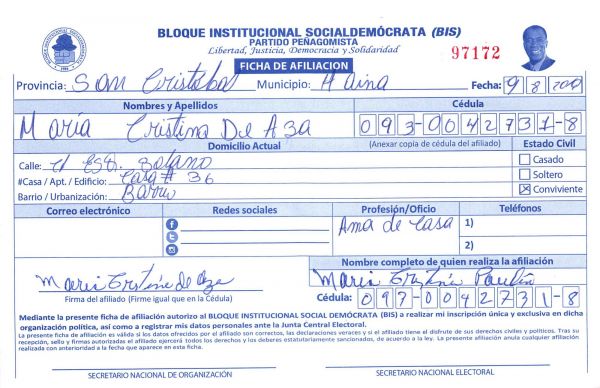 BLOQUE INSTITUCIONAL SOCIALDEMÓCRATA (BIS)
PARTIDO PEÑAGOMISTA
Libertad, Justicia, Democracia y Solidaridad
97172
FICHA DE AFILIACION
Provincia: San Cristobal Municipio: Haina Fecha: 9 8
Nombres y Apellidos Cédula
María Cristina De Aza 093-0042731-8
Domicilio Actual (Anexar copia de cédula del afiliado) Estado Civil
Calle: Solano Casado
#Casa / Apt. / Edificio: Casa # 36 Soltero
Barrio / Urbanización: Barrio Conviviente
Correo electrónico Redes sociales Profesión/Oficio Teléfonos
Ama de Casa 1)
2)
Nombre completo de quien realiza la afiliación
Maria Cristina de Aza Maria Cristina
Firma del afiliado (Firme igual que en la Cédula) Cédula: 097-0042731-8
Mediante la presente ficha de afiliación autorizo al BLOQUE INSTITUCIONAL SOCIAL DEMÓCRATA (BIS) a realizar mi inscripción única y exclusiva en dicha
organización política, así como a registrar mis datos personales ante la Junta Central Electoral.
La presente ficha de afiliación es válida si los datos ofrecidos por el afiliado son correctos, las declaraciones veraces y si el afiliado tiene el disfrute de sus derechos civiles y políticos. Tras su
recepción, sello y firmas autorizadas el afiliado ejercerá todos los derechos y los deberes estatutariamente sancionados, de acuerdo a la ley. La presente afiliación anula cualquier afiliación
realizada con anterioridad a la fecha que aparece en esta ficha.
SECRETARIO NACIONAL DE ORGANIZACIÓN SECRETARIO NACIONAL ELECTORAL